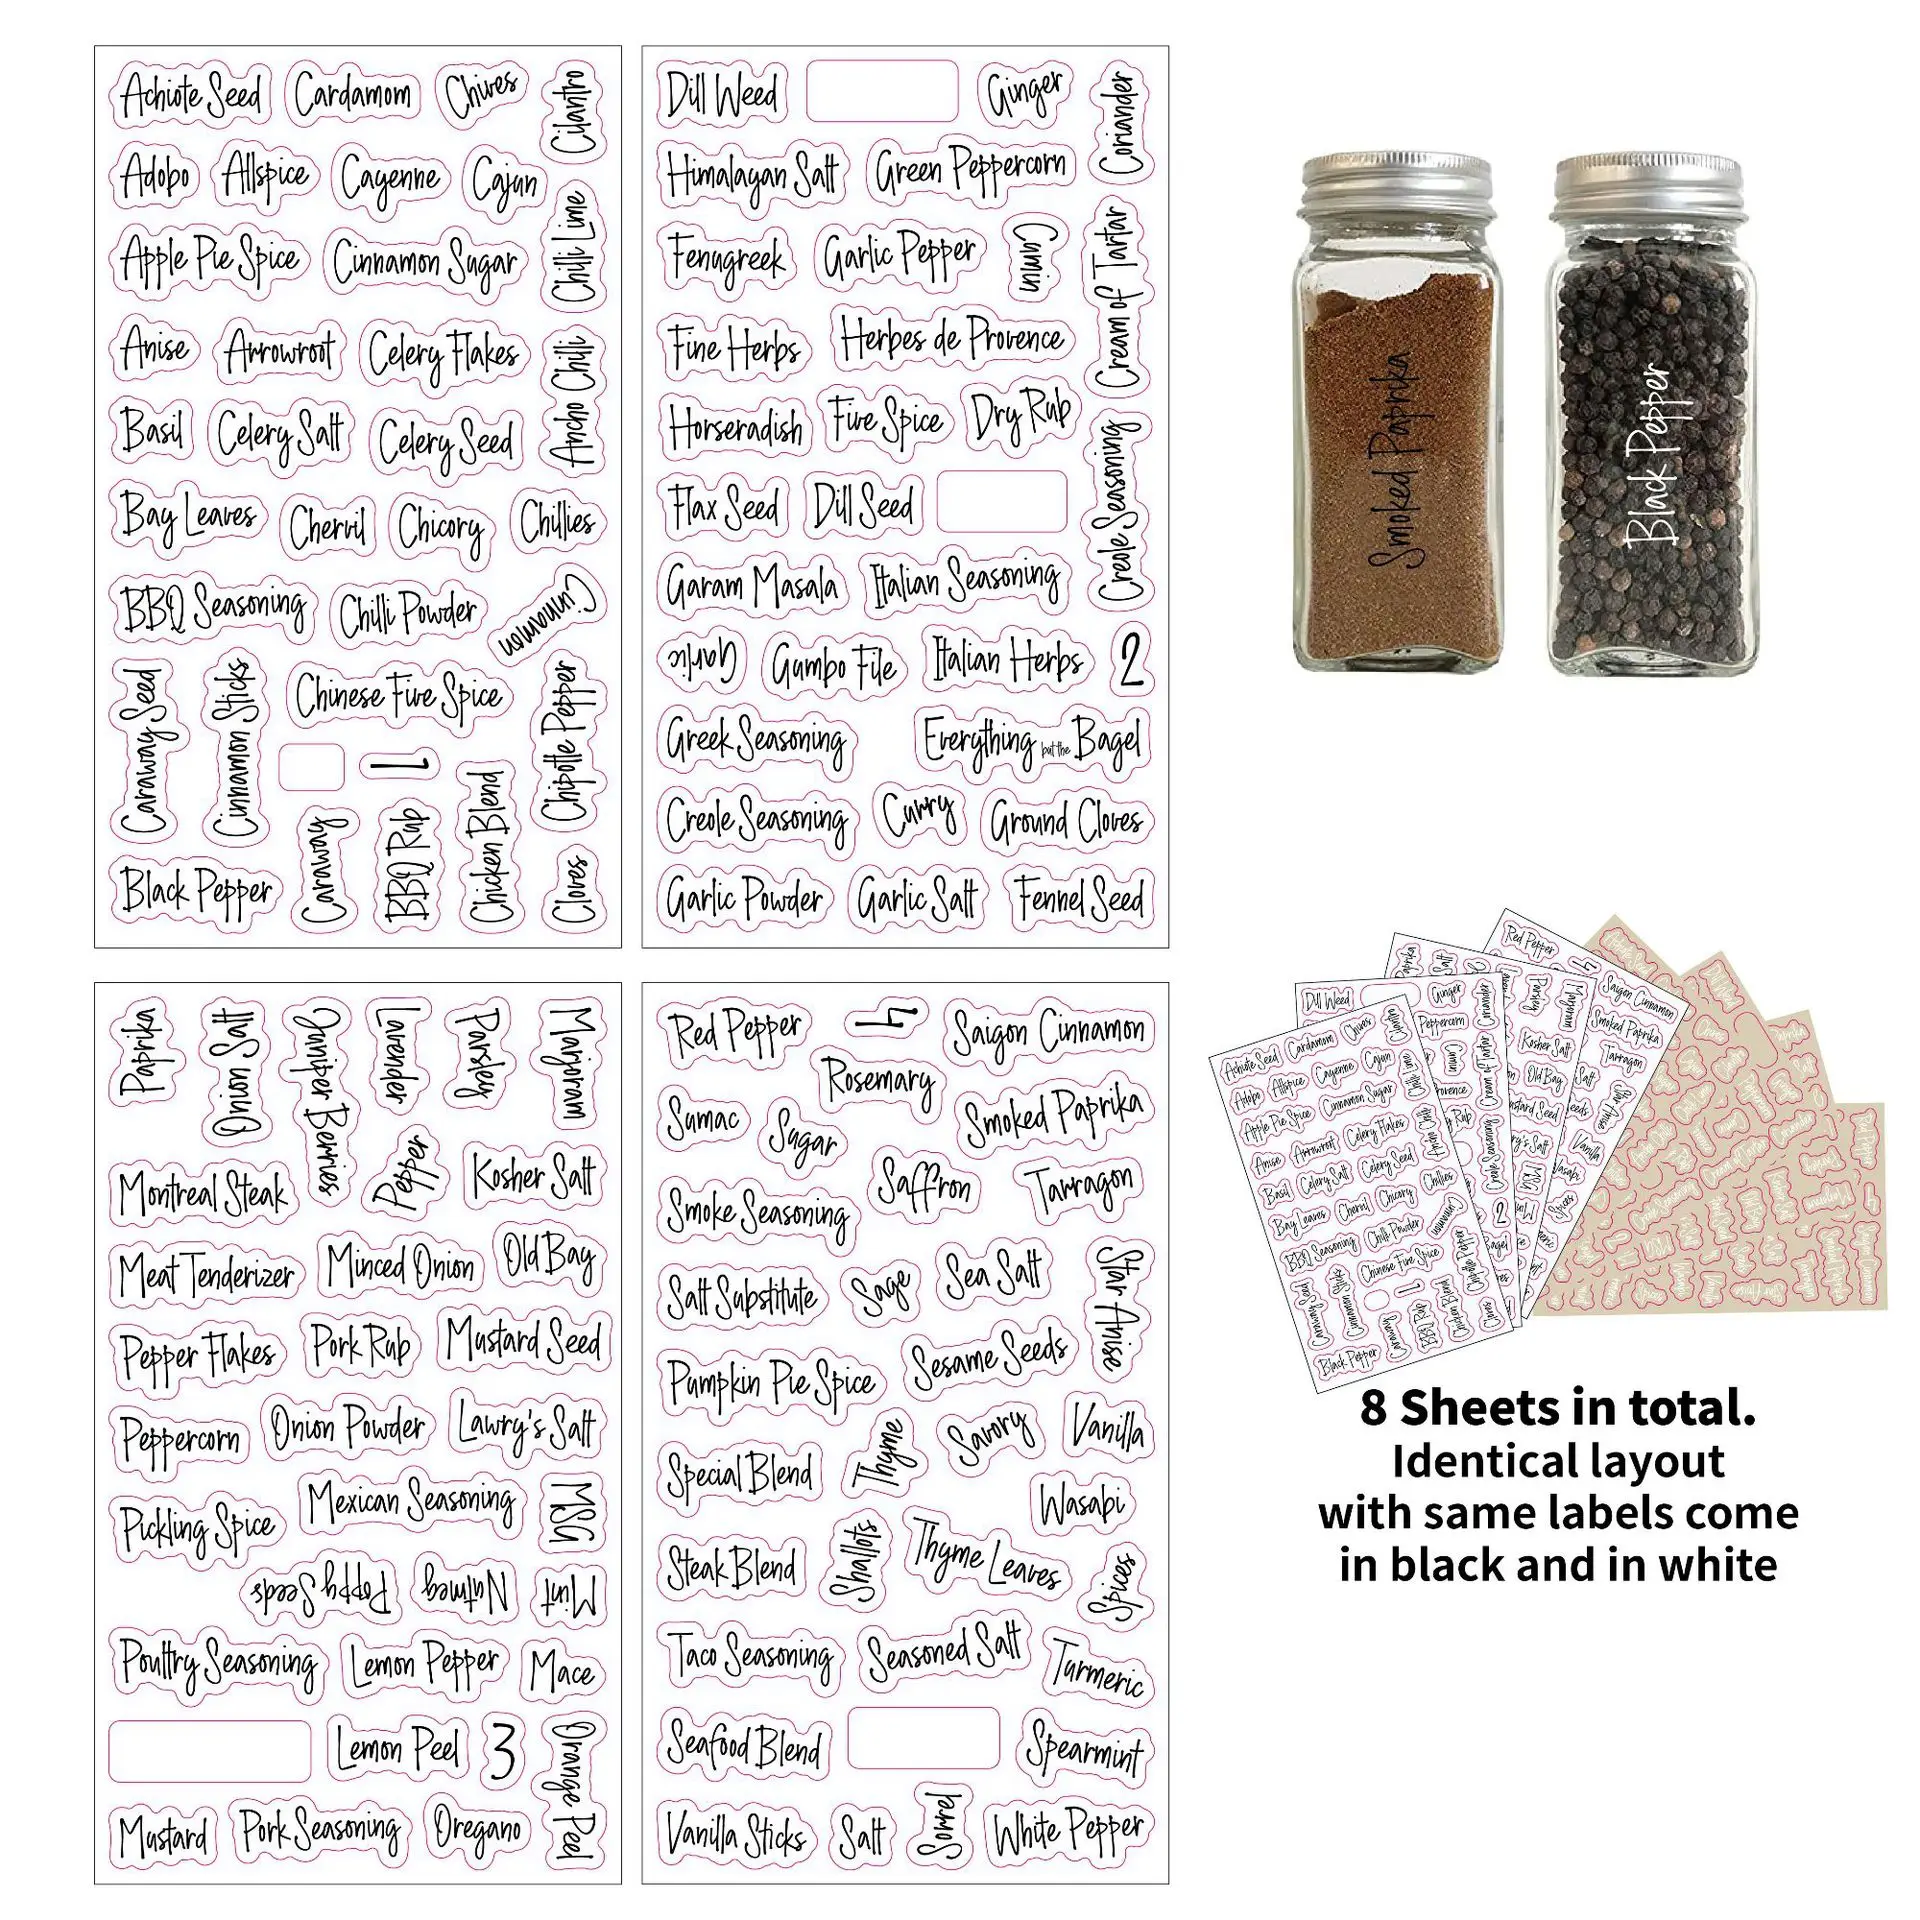 Achiote Seed
Cardamom
Chives
Cilantro
Adobo
Allspice
Cayenne
Cajun
Chilli Lime
Apple Pie Spice
Cinnamon Sugar
Anise
Arrowroot
Celery Flakes
Ancho Chilli
Basil
Celery Salt
Celery Seed
Bay Leaves
Chervil
Chicory
Chillies
BBQ Seasoning
Chilli Powder
Cinnamon
Caraway Seed
Cinnamon Sticks
Chinese Five Spice
Chipotle Pepper
1
Black Pepper
Caraway
BBQ Rub
Chicken Blend
Cloves
Dill Weed
Ginger
Coriander
Himalayan Salt
Green Peppercorn
Fenugreek
Garlic Pepper
Cumin
Cream of Tartar
Fine Herbs
Herbes de Provence
Horseradish
Five Spice
Dry Rub
Creole Seasoning
Flax Seed
Dill Seed
Garam Masala
Italian Seasoning
Garlic
Gumbo File
Italian Herbs
2
Greek Seasoning
Everything but the Bagel
Creole Seasoning
Curry
Ground Cloves
Garlic Powder
Garlic Salt
Fennel Seed
Paprika
Onion Salt
Juniper Berries
Lavender
Parsley
Marjoram
Montreal Steak
Pepper
Kosher Salt
Meat Tenderizer
Minced Onion
Old Bay
Pepper Flakes
Pork Rub
Mustard Seed
Peppercorn
Onion Powder
Lawry's Salt
Pickling Spice
Mexican Seasoning
MSG
Poppy Seeds
Nutmeg
Mint
Poultry Seasoning
Lemon Pepper
Mace
Lemon Peel
3
Orange Peel
Mustard
Pork Seasoning
Oregano
Red Pepper
4
Saigon Cinnamon
Rosemary
Sumac
Sugar
Smoked Paprika
Smoke Seasoning
Saffron
Tarragon
Salt Substitute
Sage
Sea Salt
Star Anise
Pumpkin Pie Spice
Sesame Seeds
Special Blend
Thyme
Savory
Vanilla
Wasabi
Steak Blend
Shallots
Thyme Leaves
Spices
Taco Seasoning
Seasoned Salt
Turmeric
Seafood Blend
Spearmint
Vanilla Sticks
Salt
Sorrel
White Pepper
Smoked Paprika
Black Pepper
8 Sheets in total.
Identical layout
with same labels come
in black and in white